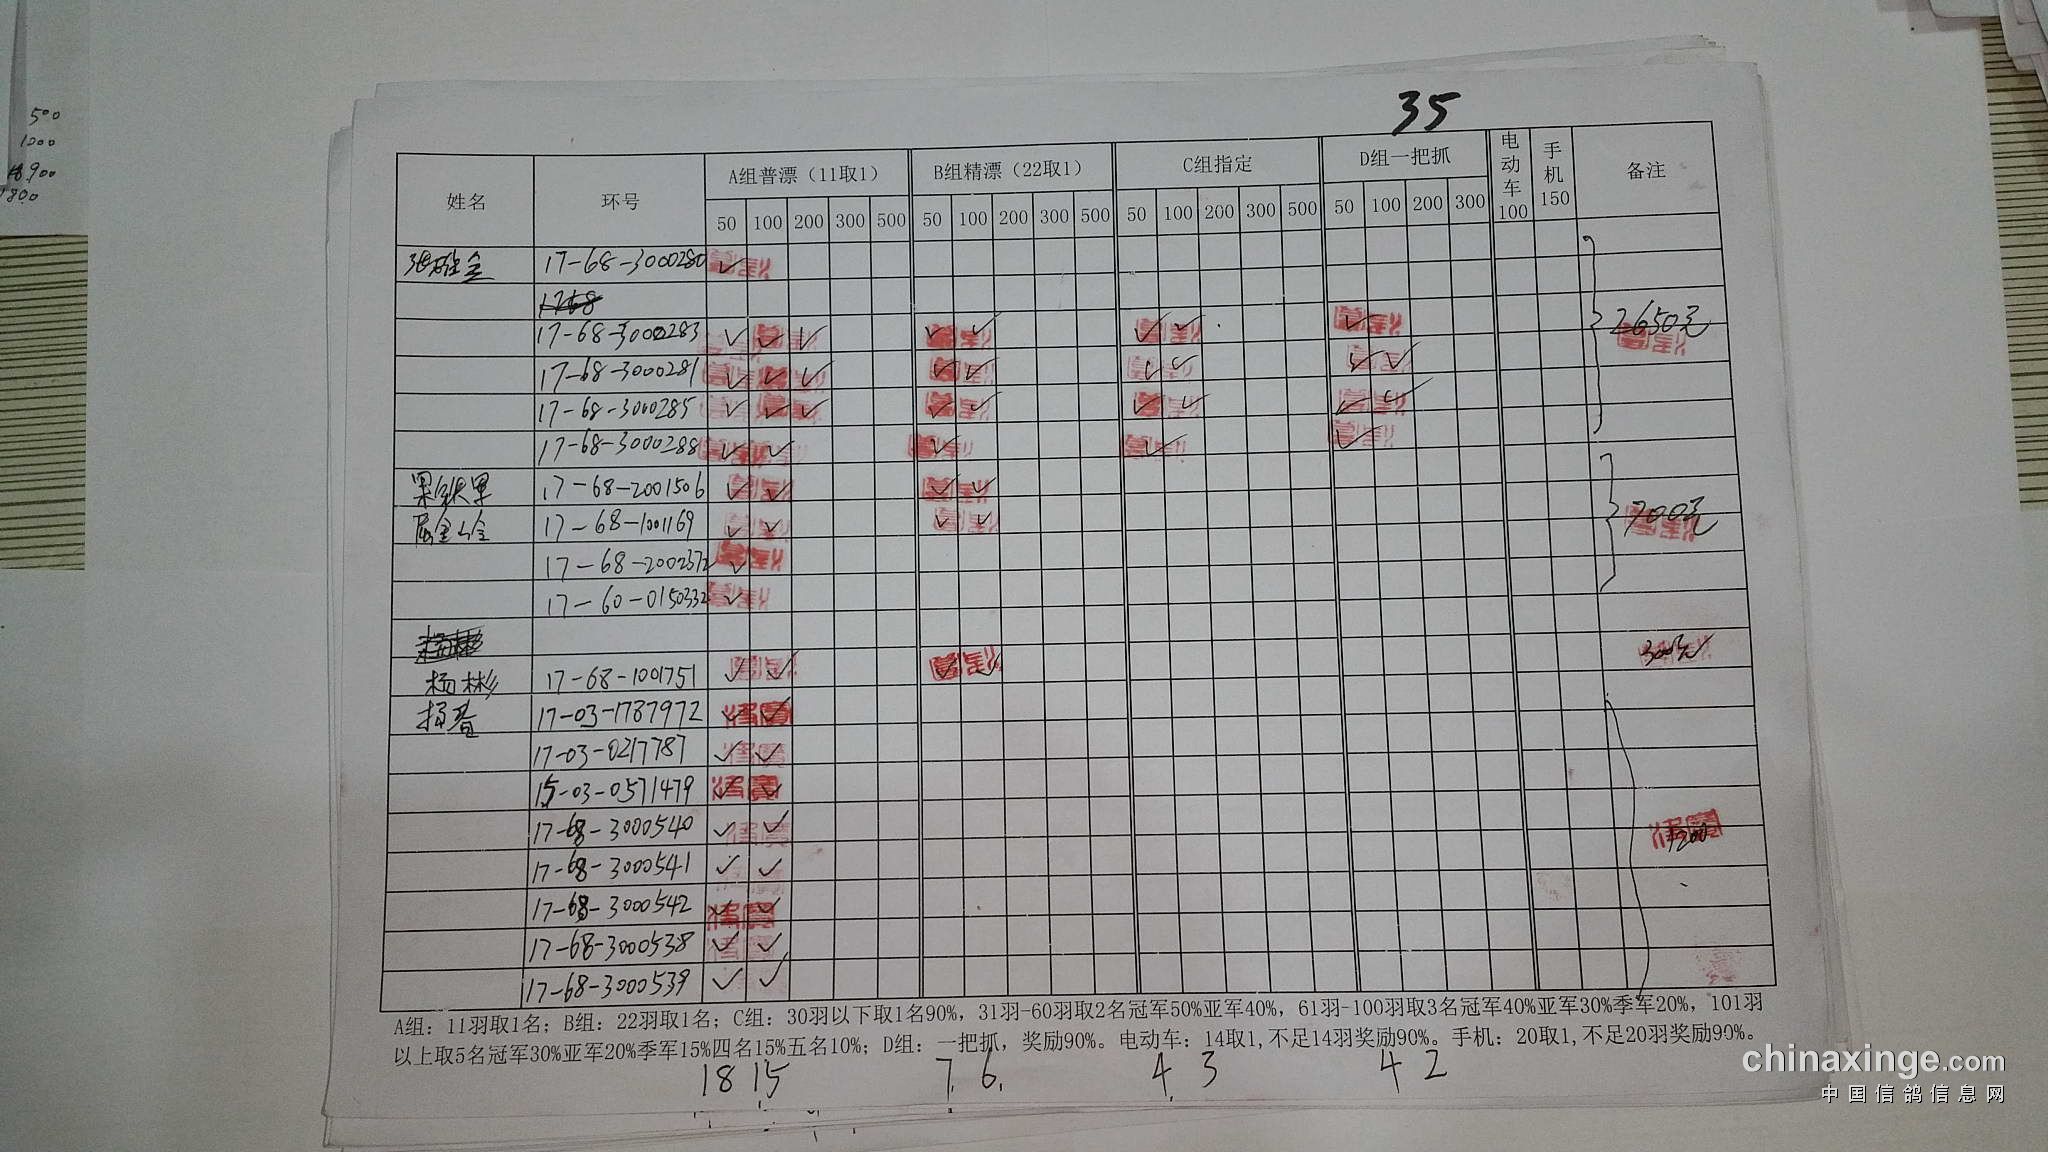 500
1200
18900
1800
35
姓名 环号 A组普漂（11取1） B组精漂（22取1） C组指定 D组一把抓 电动车100 手机150 备注
50 100 200 300 500 50 100 200 300 500 50 100 200 300 500 50 100 200 300
17-68-3000280 ✓
17-68-3000283 ✓ ✓ ✓ ✓ ✓ ✓ ✓ ✓ 2650元
17-68-3000281 ✓ ✓ ✓ ✓ ✓ ✓ ✓ ✓ ✓
17-68-3000285 ✓ ✓ ✓ ✓ ✓ ✓ ✓ ✓ ✓
17-68-3000288 ✓ ✓ ✓ ✓ ✓
17-68-2001506 ✓ ✓ ✓ ✓
17-68-1001169 ✓ ✓ ✓ ✓ 700元
17-68-2002372 ✓
17-60-0150332 ✓
杨彬 17-68-1001751 ✓ ✓ ✓ ✓ 300元
17-03-1787972 ✓ ✓
17-03-0217787 ✓ ✓
15-03-0571479 ✓ ✓
17-68-3000540 ✓ ✓ 1200
17-68-3000541 ✓ ✓
17-68-3000542 ✓ ✓
17-68-3000538 ✓ ✓
17-68-3000539 ✓ ✓
A组：11羽取1名；B组：22羽取1名；C组：30羽以下取1名90%，31羽-60羽取2名冠军50%亚军40%，61羽-100羽取3名冠军40%亚军30%季军20%，101羽
以上取5名冠军30%亚军20%季军15%四名15%五名10%；D组：一把抓，奖励90%。电动车：14取1,不足14羽奖励90%。手机：20取1,不足20羽奖励90%。
18 15 7 6 4 3 4 2
chinaxinge.com
中国信鸽信息网